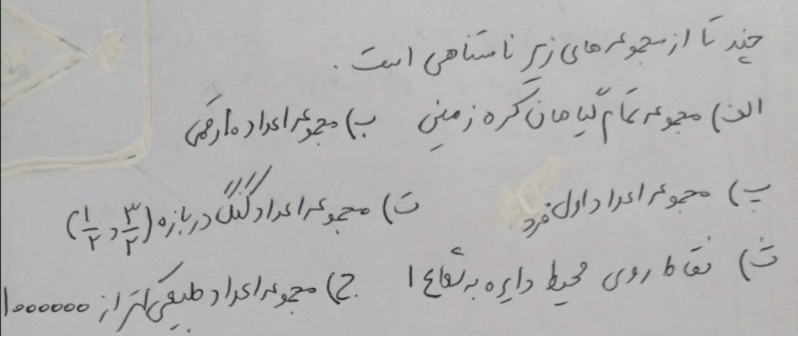 چند تا از مجموعه های زیر نامتناهی است.
الف) مجموعه تمام گیاهان کره زمین ب) مجموعه اعداد ۱۰ رقمی
پ) مجموعه اعداد اول فرد ت) مجموعه اعداد گنگ در بازه (۱/۲ , ۳/۲)
ث) نقاط روی محیط دایره به شعاع ۱ ج) مجموعه اعداد طبیعی کمتر از ۱۰۰۰۰۰۰